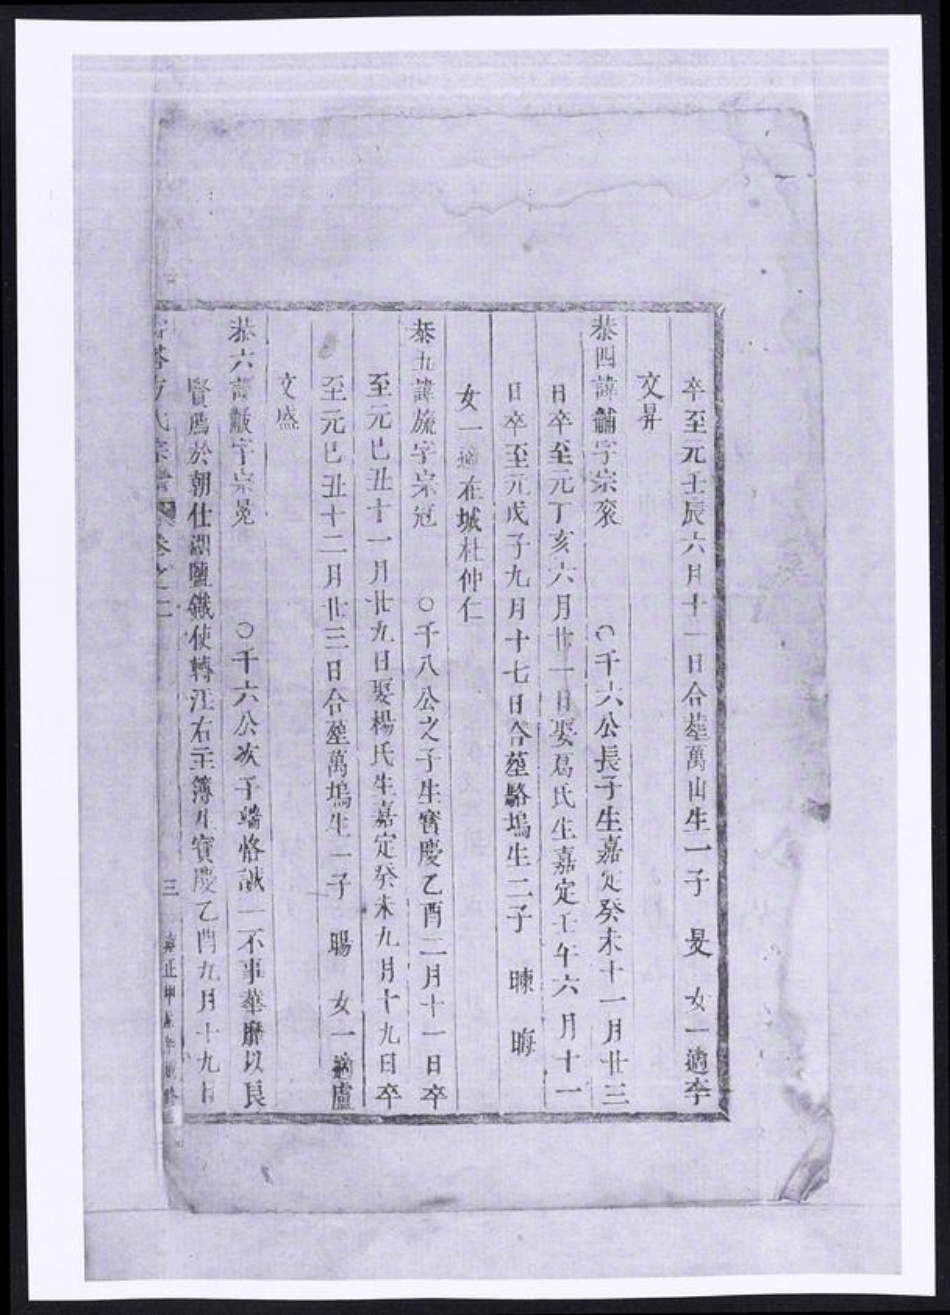 卒至元壬辰六月十一日合塟萬山生一子 旻 女一適李
文昇
恭四諱黼字宗衮 ○千六公長子生嘉定癸未十一月廿三
日卒至元丁亥六月廿一日娶葛氏生嘉定壬午六月十一
日卒至元戊子九月十七日合塟駱塢生二子 暕 晦
女一適在城杜仲仁
恭五諱旒字宗冠 ○千八公之子生寳慶乙酉二月十一日卒
至元己丑十一月廿九日娶楊氏生嘉定癸未九月十九日卒
至元己丑十二月廿三日合塟萬塢生一子 暘 女一適盧
文盛
恭六諱黻字宗冕 ○千六公次子端恪誠一不事華靡以良
賢薦於朝仕湖鹽鐵使轉江右主簿生寳慶乙酉九月十九日
方氏宗譜 卷之二 三 正甲